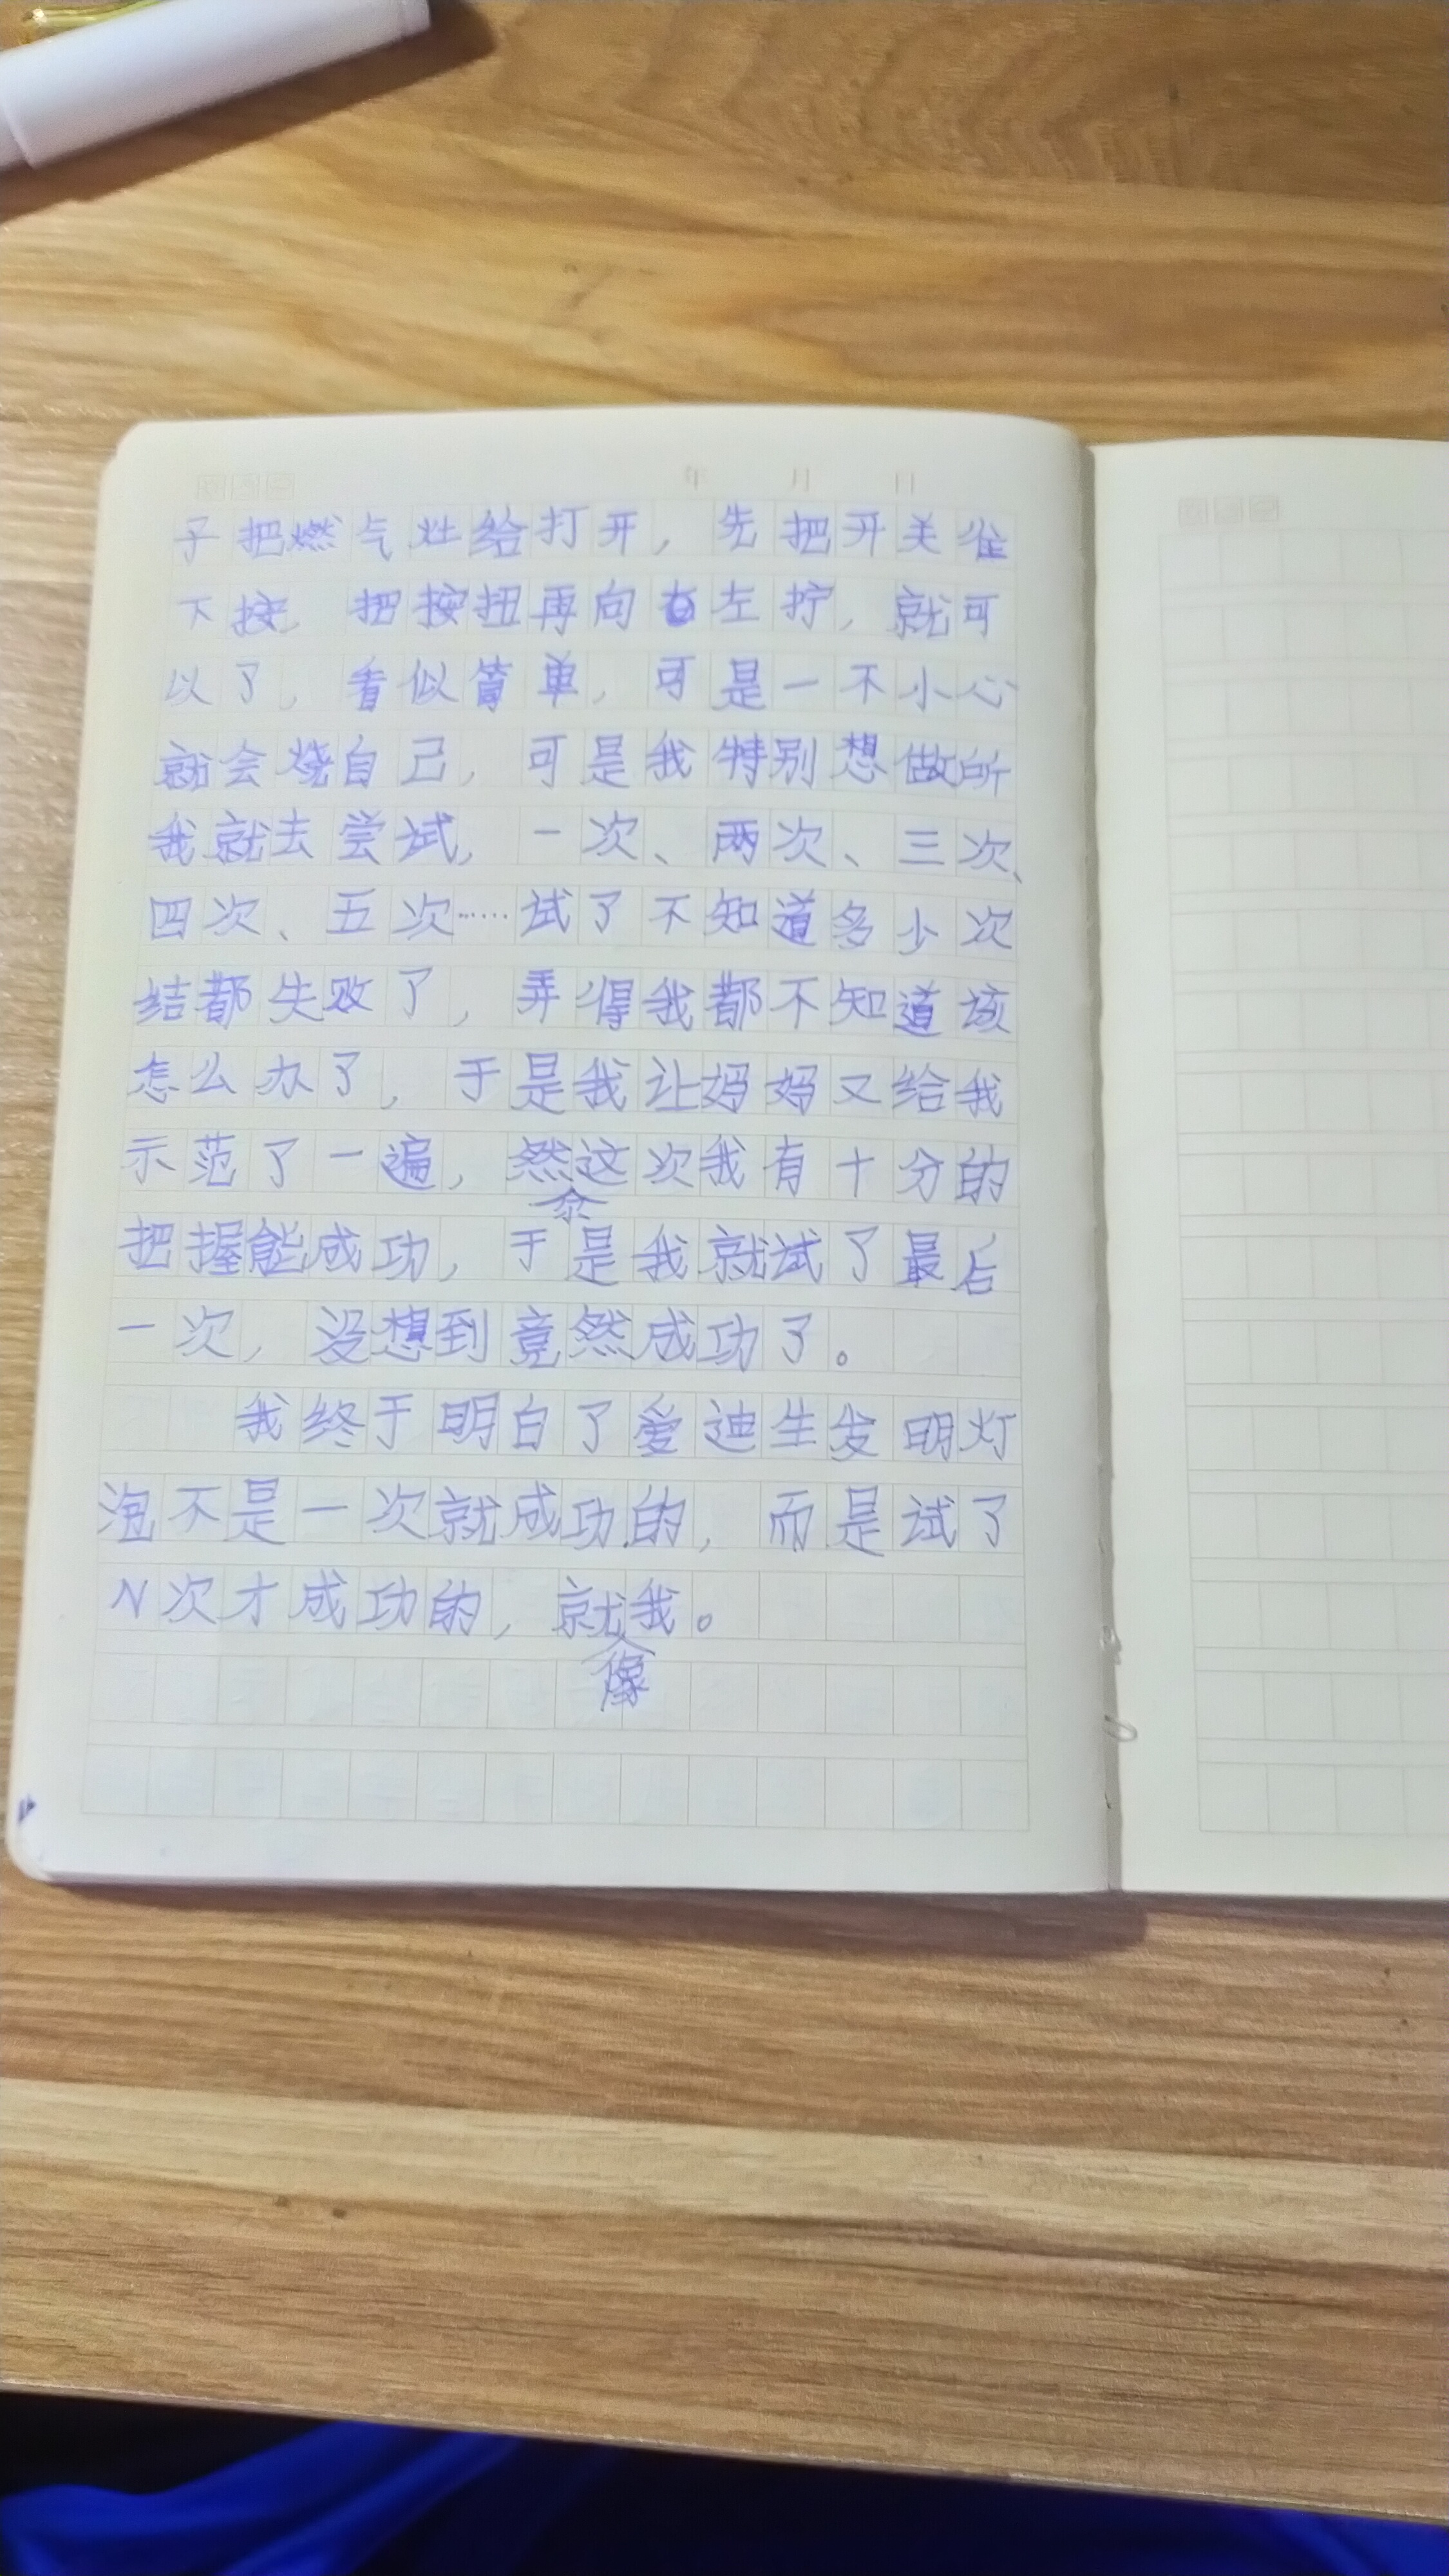 年 月 日
子把燃气灶给打开，先把开关往
下按，把按扭再向左拧，就可
以了，看似简单，可是一不小心
就会烧自己，可是我特别想做所
我就去尝试，一次、两次、三次、
四次、五次……试了不知道多少次
结都失败了，弄得我都不知道该
怎么办了，于是我让妈妈又给我
示范了一遍，然这次我有十分的
把握能成功，于是我就试了最后
一次，没想到竟然成功了。
我终于明白了爱迪生发明灯
泡不是一次就成功的，而是试了
N次才成功的，就像我。